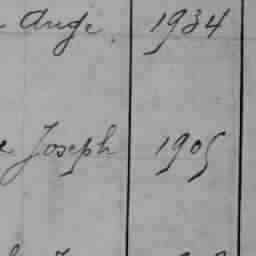 Ange 1934
Joseph 1905